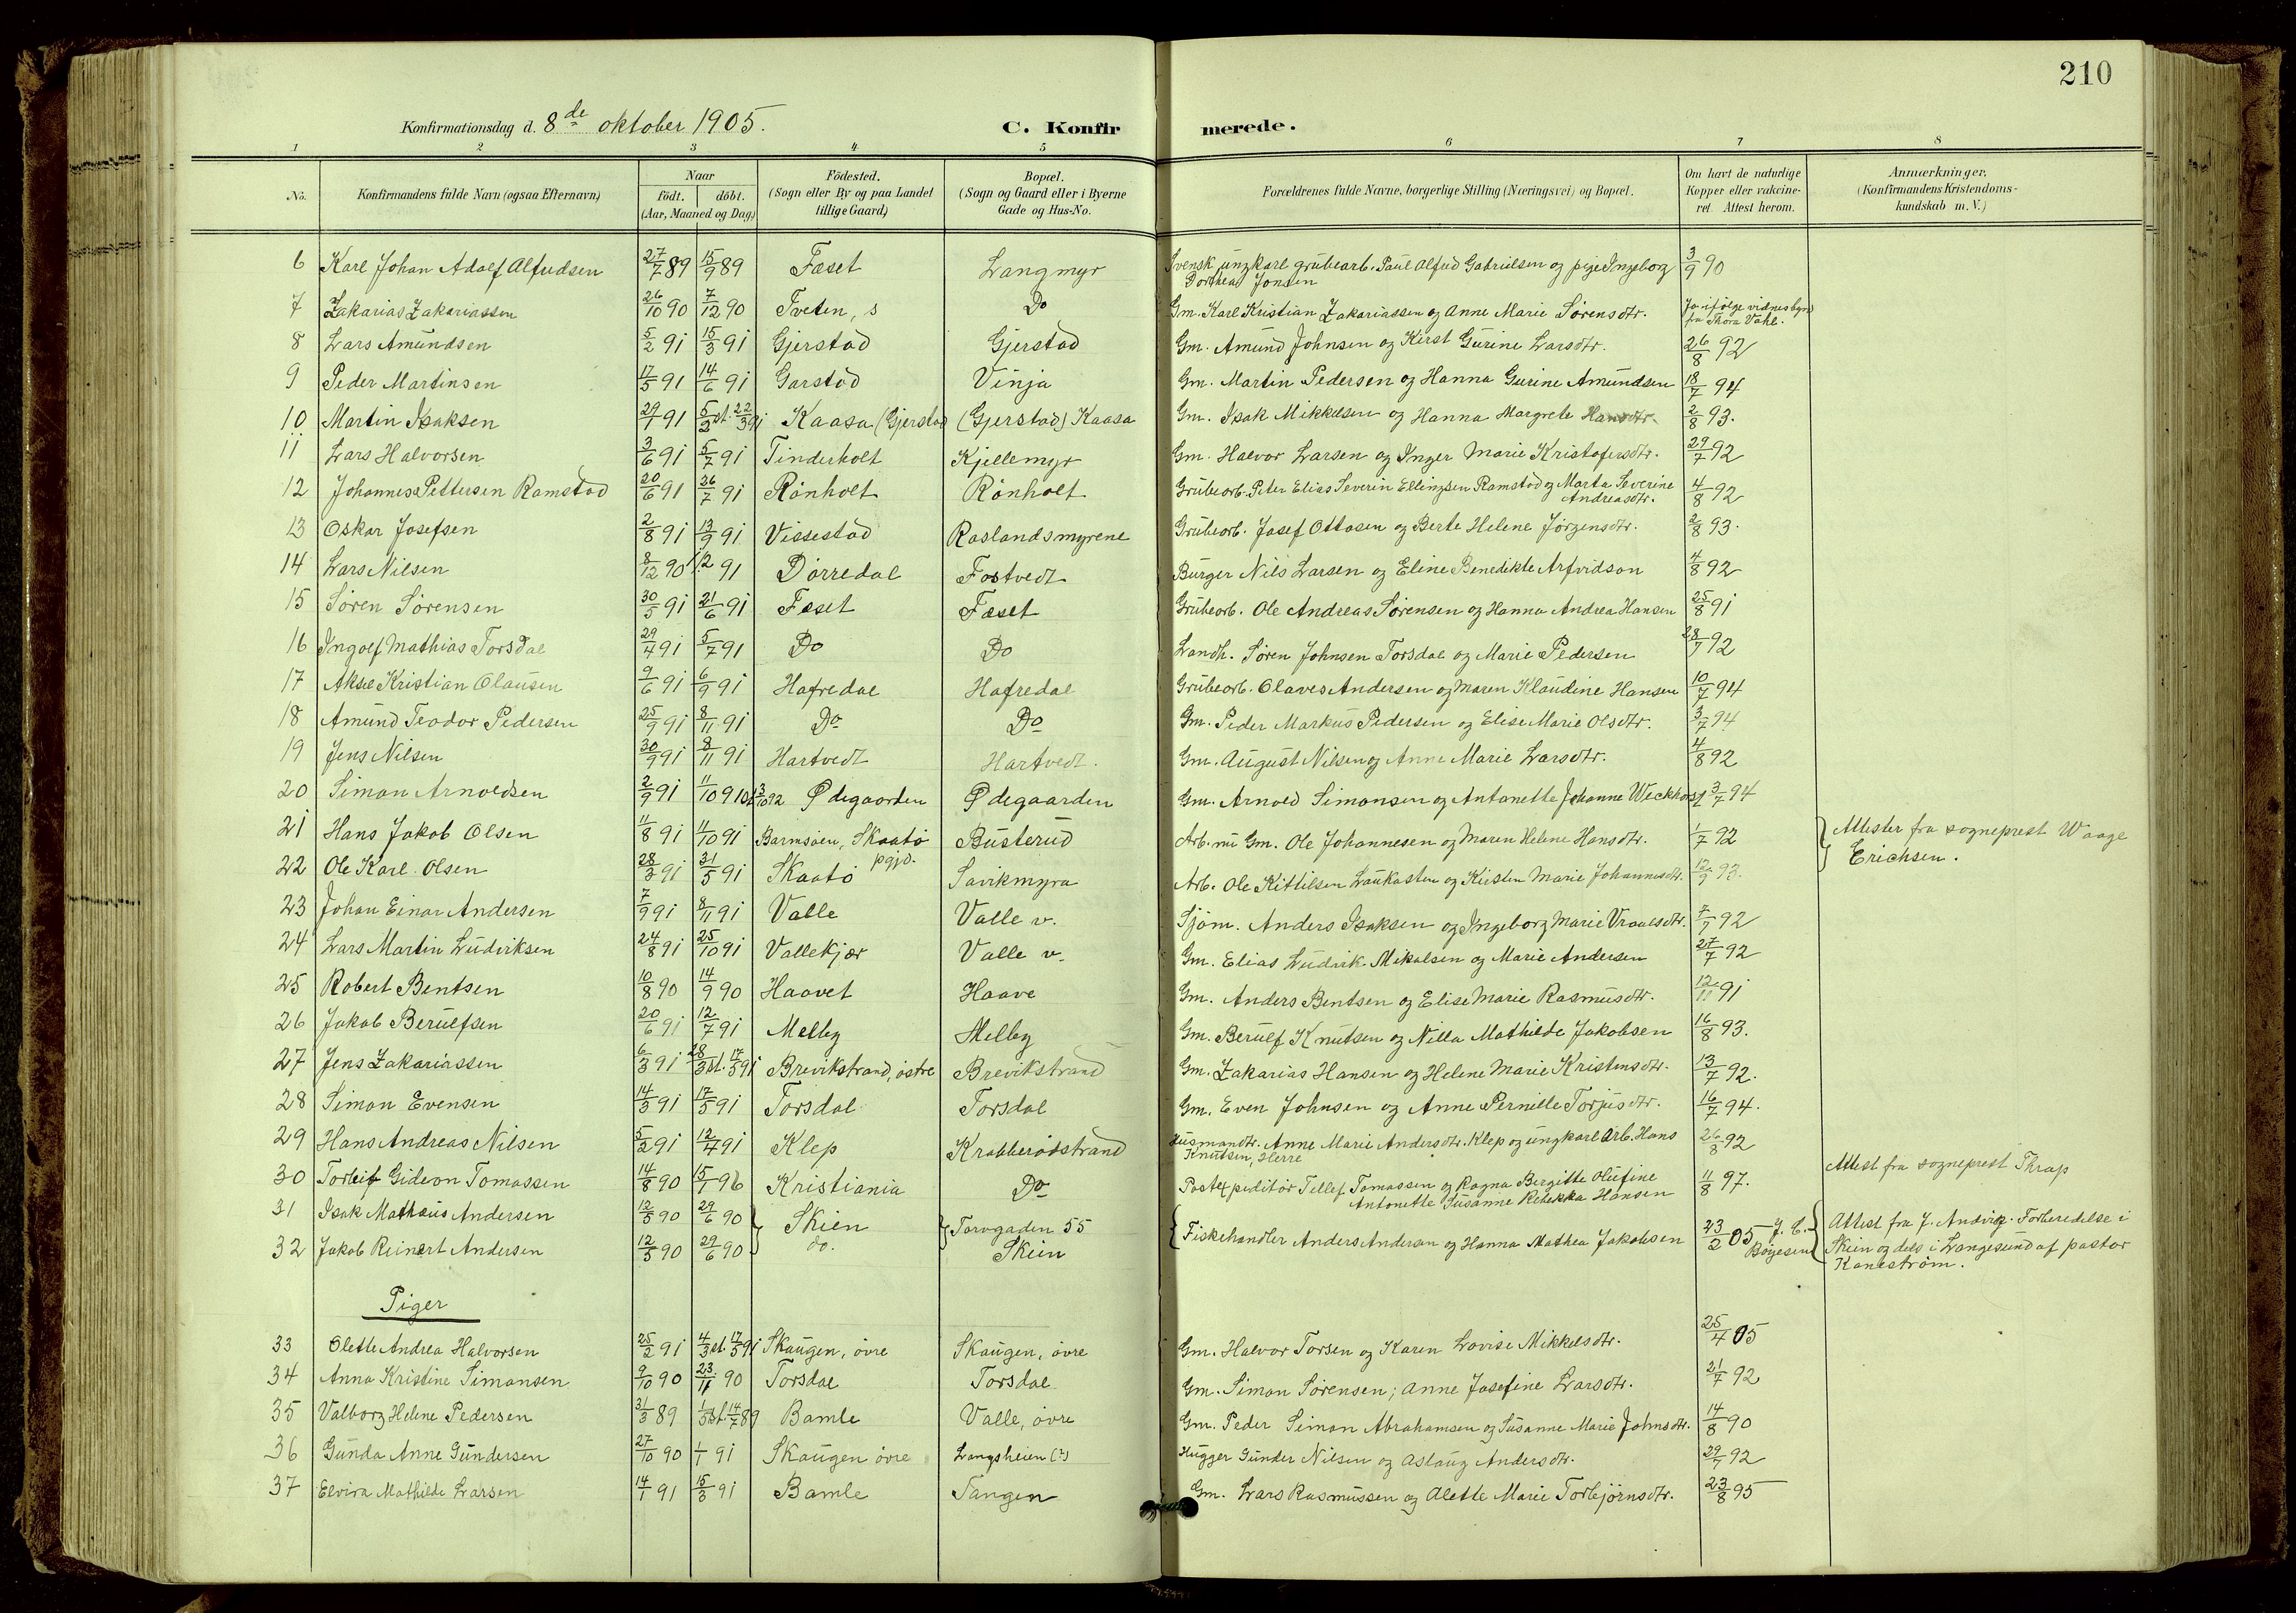 210
Konfirmationsdag d. 8de oktober 1905.
C. Konfirmerede.
1 2 3 4 5 6 7 8
No. Konfirmandens fulde Navn (ogsaa Efternavn) Naar født. døbt. (Aar, Maaned og Dag) Fødested. (Sogn eller By og paa Landet tillige Gaard) Bopæl. (Sogn og Gaard eller i Byerne Gade og Hus-No. Forældrenes fulde Navne, borgerlige Stilling (Næringsvei) og Bopæl. Om havt de naturlige Kopper eller vakcineret. Attest herom. Anmærkninger. (Konfirmandens Kristendomskundskab m. V.)
6 Karl Johan Adolf Alfredsen 27/7 89 15/9 89 Fæset Langmyr Svensk ungkarl grubearb. Paul Alfred Gabrielsen og pige Ingeborg Dorthea Jonsen 3/9 90
7 Zakarias Zakariassen 26/10 90 7/12 90 Tveten, s Do Gm. Karl Kristian Zakariassen og Anne Marie Sørensdtr. Ja ifølge vidnesbyrd fra Thora Vahl.
8 Lars Amundsen 5/2 91 15/3 91 Gjerstad Gjerstad Gm. Amund Johnsen og Kirst Gurine Larsdtr. 26/8 92
9 Peder Martinsen 17/5 91 14/6 91 Garstad Vinja Gm. Martin Pedersen og Hanna Gurine Amundsen 18/7 94
10 Martin Isaksen 29/1 91 5/2 st. 22/3 91 Kaasa (Gjerstad (Gjerstad) Kaasa Gm. Isak Mikkelsen og Hanna Margrete Hansdtr. 2/8 93.
11 Lars Halvorsen 3/6 91 5/7 91 Tinderholt Kjellemyr Gm. Halvor Larsen og Inger Marie Kristofersdtr. 29/7 92
12 Johannes Pettersen Ramstad 20/6 91 26/7 91 Rønholt Rønholt Grubearb. Peter Elias Severin Ellingsen Ramstad og Marta Severine Andreasdtr. 4/8 92
13 Oskar Josefsen 2/8 91 13/9 91 Vissestad Raslandsmyrene Grubearb. Josef Ottosen og Berte Helene Jørgensdtr. 2/8 93.
14 Lars Nilsen 8/12 90 1/2 91 Dørredal Fostvedt Burger Nils Larsen og Eline Benedikte Arfvidson 4/8 92
15 Søren Sørensen 30/5 91 21/6 91 Fæset Fæset Grubearb. Ole Andreas Sørensen og Hanna Andrea Hansen 25/8 91
16 Ingolf Mathias Torsdal 29/4 91 5/7 91 Do Do Landh. Søren Johnsen Torsdal og Marie Pedersen 28/7 92
17 Aksel Kristian Olausen 9/6 91 6/9 91 Hafredal Hafredal Grubearb. Olaves Andersen og Maren Klaudine Hansen 10/7 94
18 Amund Teodor Pedersen 25/9 91 8/11 91 Do Do Gm. Peder Markus Pedersen og Elise Marie Olsdtr. 3/7 94
19 Jens Nilsen 30/9 91 8/11 91 Hartvedt Hartvedt. Gm. August Nilsen og Anne Marie Larsdtr. 4/8 92
20 Simon Arnoldsen 2/9 91 11/10 91 st. 3/10 92 Ødegaarden Ødegaarden Gm. Arnold Simonsen og Antonette Johanne Weckhorst 3/7 94
21 Hans Jakob Olsen 11/8 91 11/10 91 Barmsøen, Skaatø pgjd. Busterud Arb. nu Gm. Ole Johannesen og Maren Helene Hansdtr. 1/7 92 Attester fra sogneprest Waage Erichsen.
22 Ole Karl Olsen 28/3 91 31/5 91 Skaatø Savikmyra Arb. Ole Kittilsen Laukasten og Kirsten Marie Johannesdtr. 12/9 93.
23 Johan Einar Andersen 7/9 91 8/11 91 Valle Valle v. Sjøm. Anders Isaksen og Ingeborg Marie Vraalsdtr. 7/7 92
24 Lars Martin Ludviksen 24/8 91 25/10 91 Vallekjær Valle v. Gm. Elias Ludvik Mikalsen og Marie Andersen 27/7 92
25 Robert Bentsen 10/8 90 14/9 90 Haavet Haave Gm. Anders Bentsen og Elise Marie Rasmusdtr. 12/11 91
26 Jakob Berulfsen 20/6 91 12/7 91 Melby Melby Gm. Berulf Knutsen og Nilla Mathilde Jakobsen 16/8 93.
27 Jens Zakariassen 6/3 91 28/3 st. 17/5 91 Brevikstrand, østre Brevikstrand Gm. Zakarias Hansen og Helene Marie Kristensdtr. 13/7 92.
28 Simon Evensen 14/3 91 17/5 91 Torsdal Torsdal Gm. Even Johnsen og Anne Pernille Torjusdtr. 16/7 94.
29 Hans Andreas Nilsen 5/2 91 12/4 91 Klep Krabberødstrand Husmandtr. Anne Marie Andersdtr. Klep og ungkarl Arb. Hans Knutsen, Herre 26/8 92
30 Torleif Gideon Tomassen 14/8 90 15/1 96 Kristiania Do Postexpeditør Tellef Tomassen og Ragna Bergitte Olufine Antonette Susanne Rebekka Hansen 11/8 97. Attest fra sogneprest Thrap
31 Isak Mathæus Andersen 12/5 90 29/6 90 Skien Torvgaden 55 Fiskehandler Anders Andersen og Hanna Mathea Jakobsen 23/2 05 J. C. Børgesen Attest fra J. Andvig. Forberedelse i
32 Jakob Reinert Andersen 12/5 90 29/6 90 do. Skien Skien og dels i Langesund af pastor Kanestrøm.
Piger
33 Olette Andrea Halvorsen 25/2 91 4/3 st. 17/5 91 Skaugen, øvre Skaugen, øvre Gm. Halvor Torsen og Karen Lovise Mikkelsdtr. 25/4 05
34 Anna Kristine Simonsen 9/10 90 23/11 90 Torsdal Torsdal Gm. Simon Sørensen; Anne Josefine Larsdtr. 21/7 92
35 Valborg Helene Pedersen 31/3 89 1/5 st. 14/7 89 Bamle Valle, øvre Gm. Peder Simon Abrahamsen og Susanne Marie Johnsdtr. 14/8 90
36 Gunda Anne Gundersen 27/10 90 1/1 91 Skaugen øvre Langsheien (?) Hugger Gunder Nilsen og Aslaug Andersdtr. 29/7 92
37 Elvira Mathilde Larsen 14/1 91 15/3 91 Bamle Tangen Gm. Lars Rasmussen og Alette Marie Torbjørnsdtr. 23/8 95